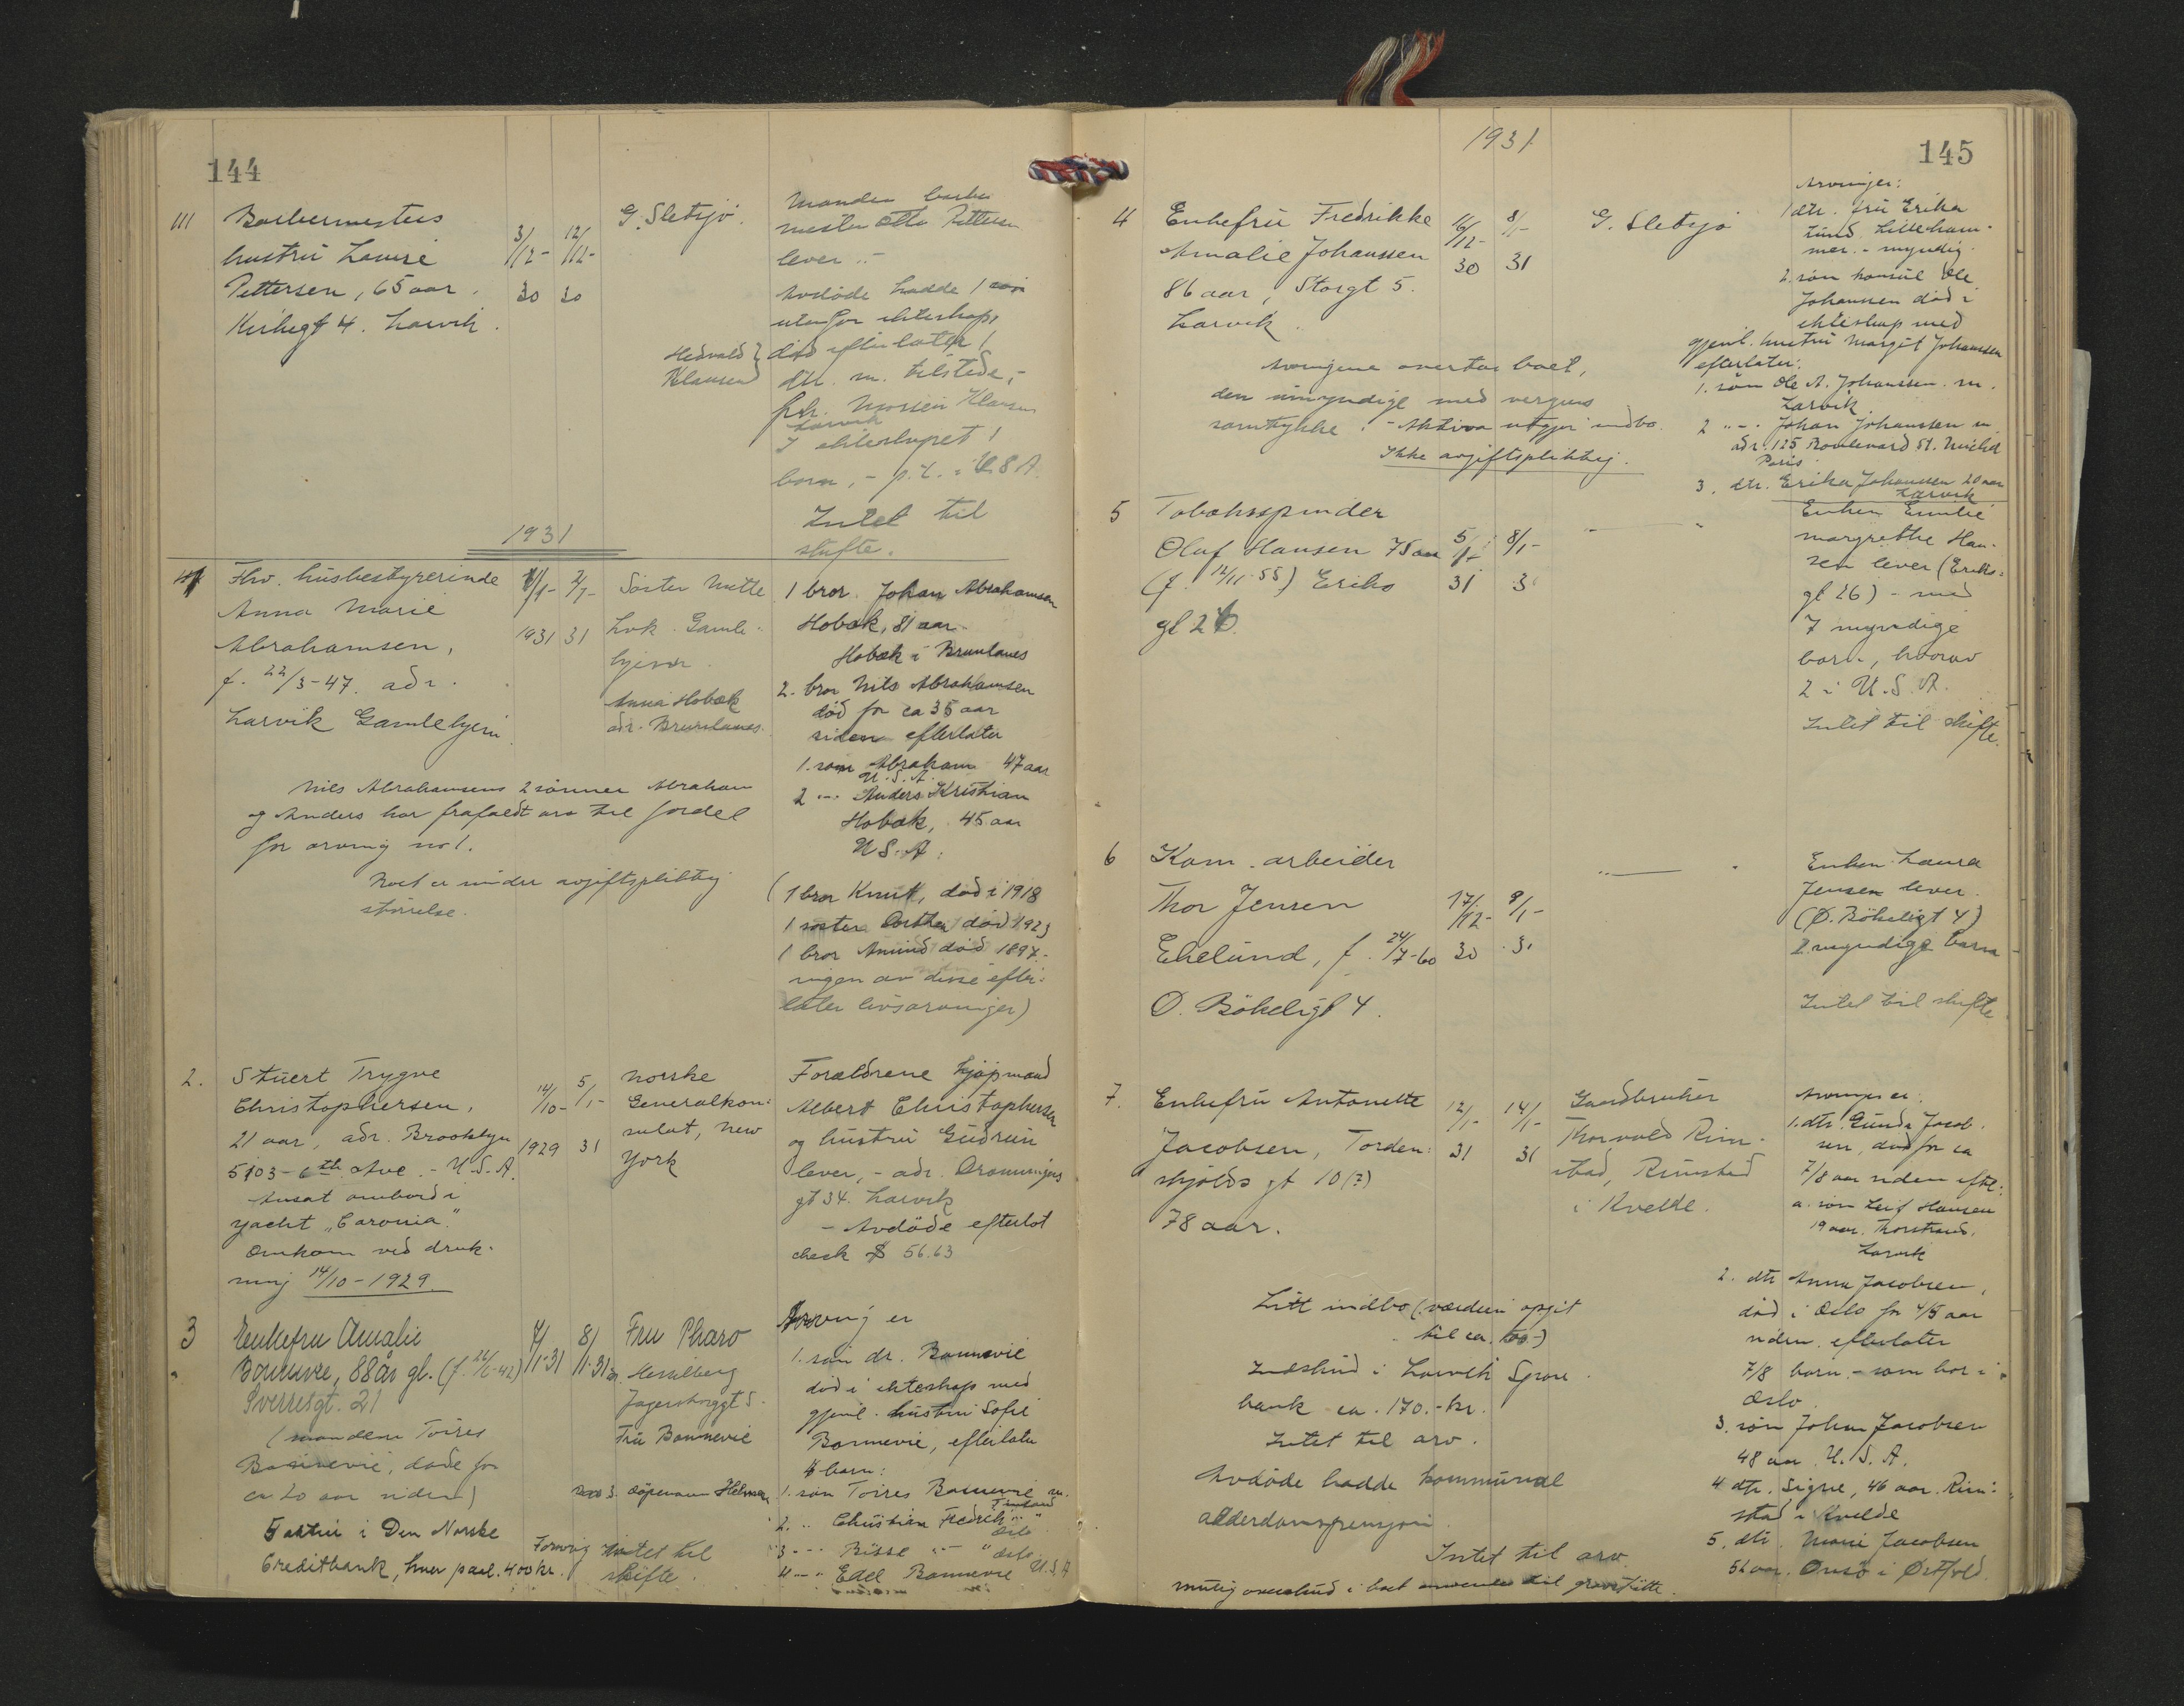 144
111
Barbermesters
hustru Lovise
Pettersen, 65 aar.
Kirkegt 4. Larvik.
3/12- 12/12-
30 30
G. Sletsjö.
Manden barber
mester Otto Pettersen
lever.-
Avdöde hadde 1 sön
utenfor ekteskap,
död efterlater 1
dtr. m. tilstede,-
frk. Klausen
Larvik
I ekteskapet 1
barn, - p.t. i U.S.A.
Intet til
skifte.
Hedvald
Klausen
1931
1
Fhv. husbestyrerinde
Anna Marie
Abrahamsen,
f. 22/3-47. adr.
Larvik Gamlehjem
1/1- 2/1-
1931 31
Söster Mette
Lvk. Gamle-
hjem.
Anna Hobæk
adr. Brunlanes.
1 bror. Johan Abrahamsen
Hobæk, 81 aar
Hobæk i Brunlanes
2. bror Nils Abrahamsen
död for ca 35 aar
siden efterlater
1. sön Abraham 47 aar
U.S.A.
2 -"- Anders Kristian
Hobæk, 45 aar
U S. A.
(1 bror Knut, död i 1918
1 söster Dorthea död 1923
1 bror Amund död 1897.-
ingen av disse efter-
later livsarvinger)
Nils Abrahamsens 2 sönner Abraham
og Anders har frafaldt arv til fordel
for arving no 1.
Boet er under avgiftspliktig
störrelse.
2.
Stuert Trygve
Christophersen,
21 aar, adr. Brooklyn
5103 - 6th Ave. - U.S.A.
Ansat ombord i
yacht "Caronia".
Omkom ved druk-
ning 14/10-1929.
14/10- 5/1-
1929 31
Norske
Generalkon-
sulat, New
York
Forældrene kjöpmand
Albert Christophersen
og hustru Gudrun
lever, - adr. Dronningens
gt 34. Larvik
- Avdöde efterlot
check $ 56.63
3
Enkefru Amalie
Bonnevie, 88 år gl. (f. 26/2-42)
Sverresgt. 21
(manden Toires
Bonnevie, döde for
ca 20 aar siden)
5 aktier i Den Norske
Creditbank, hver paal. 400 kr.
7/1-31 8/1-31
Fru Pharo
Hesselberg
Jegersborggt 5.
Fru Bonnevie
Forövrig intet til
skifte.
Arving er
1. sön dr. Bonnevie
död i ekteskap med
gjenl. hustru Sofie
Bonnevie, efterlater
4 barn:
1. sön Toires Bonnevie m.
2. " Christian Fredrik " "
Oslo
3 -"- Bisse -"- " Oslo
4 -"- Edel Bonnevie U.S.A
1931
145
4
Enkefru Fredrikke
Amalie Johanssen
86 aar, Storgt 5.
Larvik.
16/12- 8/1-
30 31
G. Sletsjö
Arvinger:
1 dtr. fru Erika
Lund. Lilleham-
mer. - myndig.
2. sön konsul Ole
Johanssen död i
ekteskap med
gjenl. hustru Margit Johanssen
efterlater:
1. sön Ole A. Johanssen. m.
Larvik
2 -"- Johan Johanssen m.
adr. 125 Boulevard St. Michel
Paris
3. dtr. Erika Johanssen 20 aar
Larvik
Arvingene overtar boet,
den umyndige med vergens
samtykke. - Aktiva utgjör indbo.
Ikke avgiftspliktig.
5
Tobakspinder
Oluf Hansen 75 aar
(f. 12/11-55) Eriks
gt 26.
5/1- 8/1-
31 31
Enken Emilie
Margrethe Han-
sen lever (Eriks-
gt 26) - med
7 myndige
barn, hvorav
2 i U.S.A.
Intet til skifte.
6
Kom. arbeider
Thor Jensen
Ekelund, f. 24/7-60
Ö. Bökeligt 4.
17/12- 9/1-
30 31
Enken Laura
Jensen lever.
(Ö. Bökeligt 4)
2 myndige barn
Intet til skifte
7.
Enkefru Antonette
Jacobsen, Torden-
skjolds gt 10 (?)
78 aar.
12/1- 14/1-
31 31
Gaardbruker
Thorvald Rim-
stad, Rimstad
i Kvelde.
Arvinger er:
1. dtr. Gunda Jacob-
sen, död for ca
7/8 aar siden eftl.:
a. sön Leif Hansen
19 aar. Thorstrand.
Larvik
2. dtr Anna Jacobsen,
död i Oslo for 4/5 aar
siden. efterlater
7/8 barn. - som bor i
Oslo
3. sön Johan Jacobsen
48 aar. U.S.A.
4 dtr. Signe, 46 aar. Rim-
stad i Kvelde
5. dtr. Marie Jacobsen
52 aar. Onsö i Østfold.
Litt indbo (værdien opgit
til ca. 100.-)
Indskud i Larvik Spare
bank ca. 170.- kr.
Intet til arv.
Avdöde hadde kommunal
alderdomspensjon
Intet til arv.
mulig overskud i boet anvendes til gravstötte.